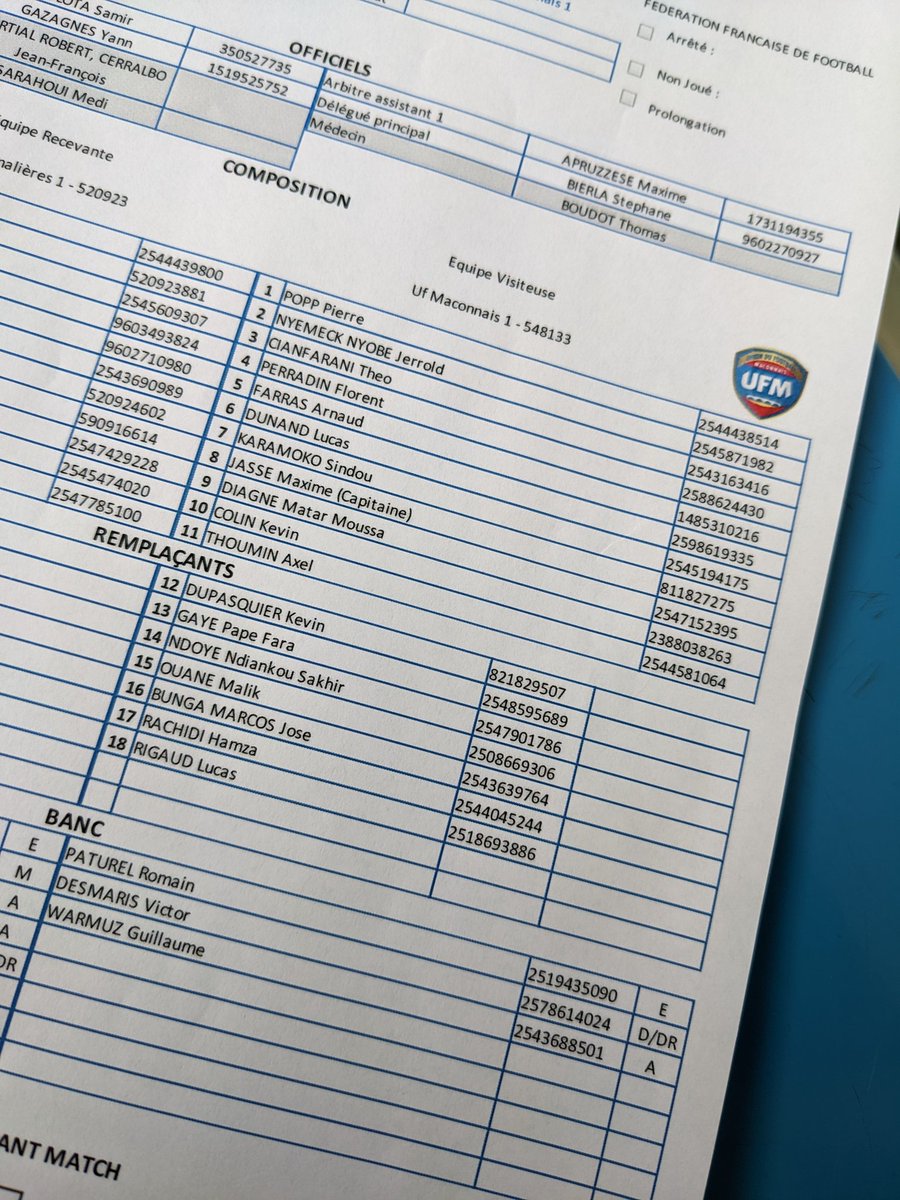 Samir
GAZAGNES Yann
ROBERT, CERRALBO
Jean-François
SARAHOUI Medi
350527735
1519525752
OFFICIELS
Arbitre assistant 1
Délégué principal
Médecin
APRUZZESE Maxime
BIERLA Stephane
BOUDOT Thomas
1731194355
9602270927
FEDERATION FRANCAISE DE FOOTBALL
Arrêté :
Non Joué :
Prolongation
COMPOSITION
Equipe Recevante
1 - 520923
Equipe Visiteuse
Uf Maconnais 1 - 548133
UFM
2544439800 1 POPP Pierre 2544438514
520923881 2 NYEMECK NYOBE Jerrold 2545871982
2545609307 3 CIANFARANI Theo 2543163416
9603493824 4 PERRADIN Florent 2588624430
9602710980 5 FARRAS Arnaud 1485310216
2543690989 6 DUNAND Lucas 2598619335
520924602 7 KARAMOKO Sindou 2545194175
590916614 8 JASSE Maxime (Capitaine) 811827275
2547429228 9 DIAGNE Matar Moussa 2547152395
2545474020 10 COLIN Kevin 2388038263
2547785100 11 THOUMIN Axel 2544581064
REMPLAÇANTS
12 DUPASQUIER Kevin 821829507
13 GAYE Pape Fara 2548595689
14 NDOYE Ndiankou Sakhir 2547901786
15 OUANE Malik 2508669306
16 BUNGA MARCOS Jose 2543639764
17 RACHIDI Hamza 2544045244
18 RIGAUD Lucas 2518693886
BANC
E PATUREL Romain 2519435090 E
M DESMARIS Victor 2578614024 D/DR
A WARMUZ Guillaume 2543688501 A
A
DR
MATCH